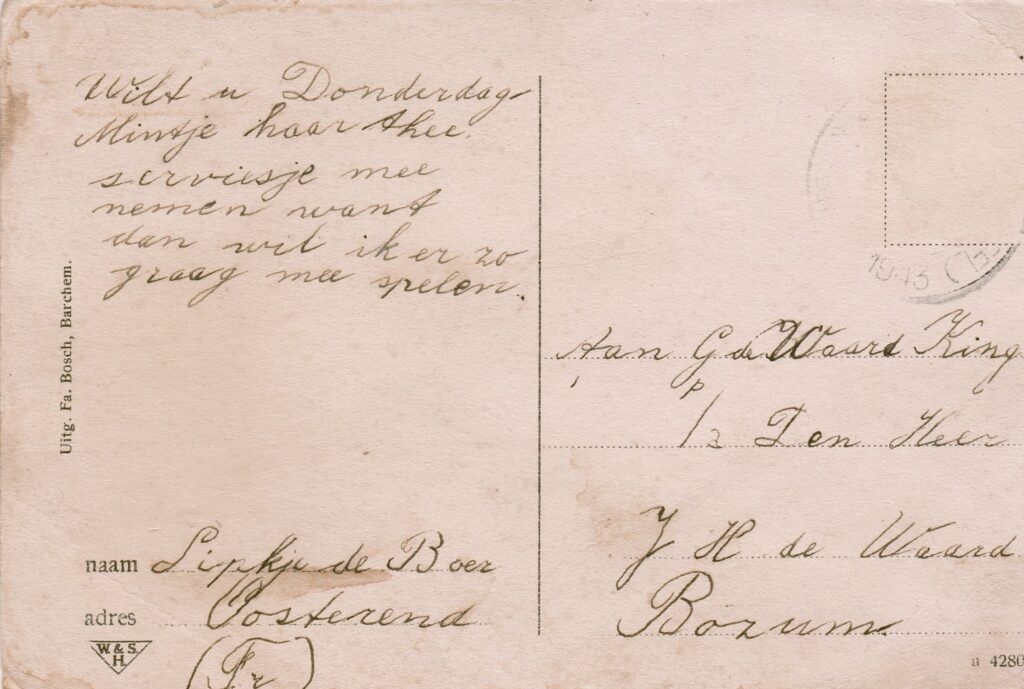 Wilt u Donderdag
Mintje haar thee.
serviesje mee
nemen want
dan wil ik er zo
graag mee spelen.
Uitg. Fa. Bosch, Barchem.
naam Lipkje de Boer
adres Oosterend
(Fr)
W. & S.
H.
1943
Aan G de Waard King
p/a Den Heer
J H de Waard
Bozum
4280